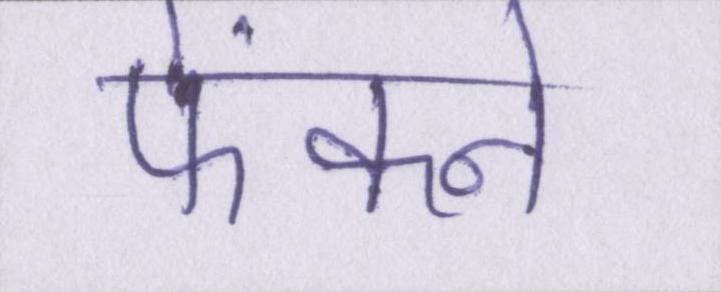 फेंकने